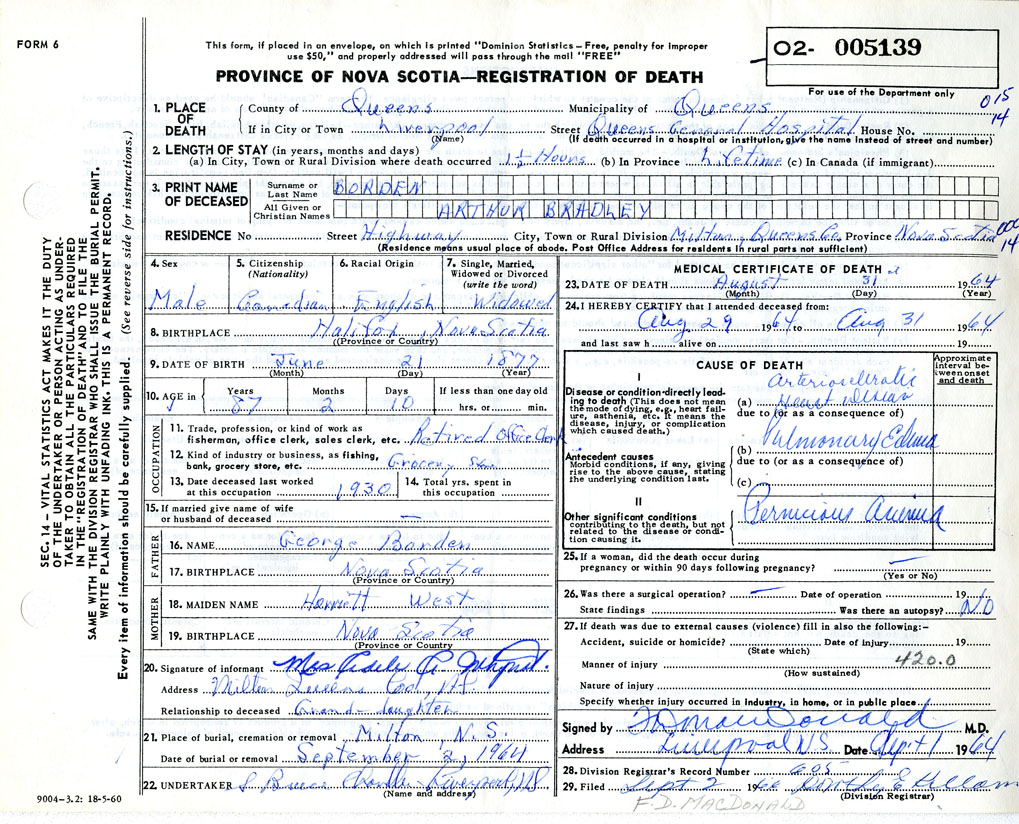 FORM 6
This form, if placed in an envelope, on which is printed "Dominion Statistics – Free, penalty for improper
use $50," and properly addressed will pass through the mail "FREE"
O2- 005139
PROVINCE OF NOVA SCOTIA—REGISTRATION OF DEATH
For use of the Department only
015
14
1. PLACE OF DEATH
County of Queens Municipality of Queens
If in City or Town Liverpool Street Queens General Hospital House No.
(Name) (If death occurred in a hospital or institution, give the name instead of street and number)
2. LENGTH OF STAY (in years, months and days)
(a) In City, Town or Rural Division where death occurred 1½ Hours (b) In Province Lifetime (c) In Canada (if immigrant)
3. PRINT NAME OF DECEASED
Surname or Last Name BORDEN
All Given or Christian Names ARTHUR BRADLEY
RESIDENCE No Street Highway City, Town or Rural Division Milton, Queens Co, Province Nova Scotia
000
14
(Residence means usual place of abode. Post Office Address for residents in rural parts not sufficient)
4. Sex
Male
5. Citizenship (Nationality)
Canadian
6. Racial Origin
English
7. Single, Married, Widowed or Divorced (write the word)
Widowed
8. BIRTHPLACE Halifax, Nova Scotia
(Province or Country)
9. DATE OF BIRTH June 21 1877
(Month) (Day) (Year)
10. AGE in Years 87 Months 2 Days 10 If less than one day old hrs. or min.
OCCUPATION
11. Trade, profession, or kind of work as
fisherman, office clerk, sales clerk, etc. Retired Office Clerk
12. Kind of industry or business, as fishing,
bank, grocery store, etc. Grocery Store
13. Date deceased last worked
at this occupation 1930
14. Total yrs. spent in
this occupation
15. If married give name of wife
or husband of deceased —
FATHER
16. NAME George Borden
17. BIRTHPLACE Nova Scotia
(Province or Country)
MOTHER
18. MAIDEN NAME Harriett West
19. BIRTHPLACE Nova Scotia
(Province or Country)
20. Signature of informant Mrs
Address Milton Queens Co, N.S.
Relationship to deceased Grand-daughter
21. Place of burial, cremation or removal Milton, N.S.
Date of burial or removal September 2, 1964
22. UNDERTAKER Liverpool, N.S.
(Name and address)
9004-3.2: 18-5-60
MEDICAL CERTIFICATE OF DEATH
23. DATE OF DEATH August 31 1964
(Month) (Day) (Year)
24. I HEREBY CERTIFY that I attended deceased from:
Aug 29 1964 to Aug 31 1964
and last saw h alive on 19
CAUSE OF DEATH
Approximate interval between onset and death
I
Disease or condition directly leading
to death (This does not mean
the mode of dying, e.g., heart failure,
asthenia, etc. It means the
disease, injury, or complication
which caused death.)
(a) Arteriosclerotic
Heart disease
due to (or as a consequence of)
Antecedent causes
Morbid conditions, if any, giving
rise to the above cause, stating
the underlying condition last.
(b) Pulmonary Edema
due to (or as a consequence of)
(c)
II
Other significant conditions
contributing to the death, but not
related to the disease or condition
causing it.
Pernicious Anemia
25. If a woman, did the death occur during
pregnancy or within 90 days following pregnancy? —
(Yes or No)
26. Was there a surgical operation? — Date of operation 19
State findings Was there an autopsy? NO
27. If death was due to external causes (violence) fill in also the following:-
Accident, suicide or homicide? Date of injury 19
(State which)
420.0
Manner of injury
(How sustained)
Nature of injury
Specify whether injury occurred in industry, in home, or in public place
Signed by F D MacDonald M.D.
Address Liverpool N.S. Date Sept 1 1964
28. Division Registrar's Record Number 605
29. Filed Sept 2
(Division Registrar)
F.D. MACDONALD
SEC. 14 – VITAL STATISTICS ACT MAKES IT THE DUTY
OF THE UNDERTAKER OR PERSON ACTING AS UNDERTAKER
TO OBTAIN ALL THE PARTICULARS REQUIRED
IN THE "REGISTRATION OF DEATH" AND TO FILE THE
SAME WITH THE DIVISION REGISTRAR WHO SHALL ISSUE THE BURIAL PERMIT.
WRITE PLAINLY WITH UNFADING INK. THIS IS A PERMANENT RECORD.
Every item of information should be carefully supplied. (See reverse side for instructions.)